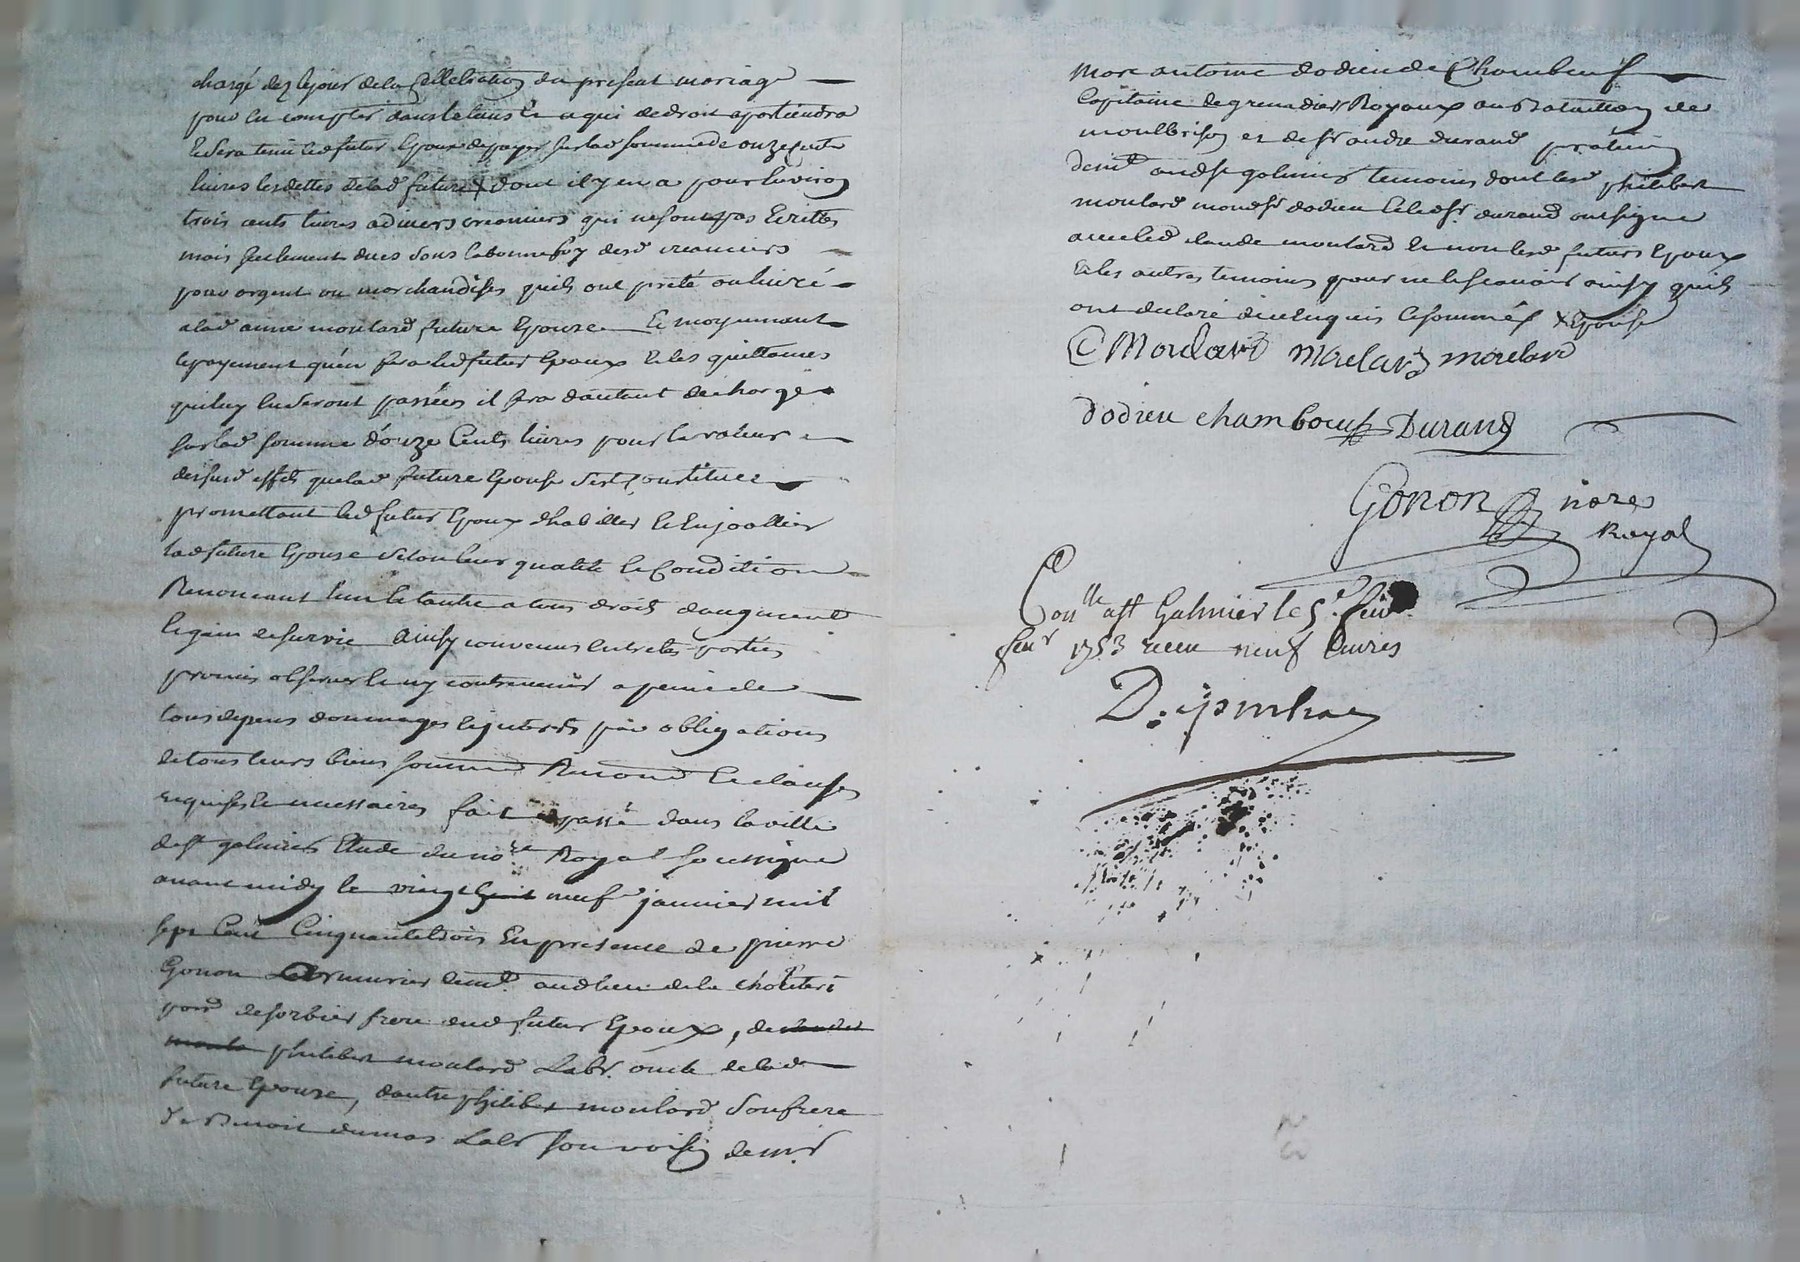 chargé dez lejour dela Cellebration du present mariage
pour les compter dans letems & a qui de droit apartiendra
& Sera tenu led futur Epoux depayer sur lad somme de onze cents
livres les dettes de lad future x dont il y en a pour Environ
trois cents livres a divers creanciers qui ne sont pas Ecrittes
mais seulement dues sous la bonne foy desd creanciers
pour argent ou marchandises quils ont prété ou livré
alad anne moulard future Epouze & moyennant
lepayement quen fera led futur Epoux & les quittances
quiluy en Seront passées il sera dautant décharge
sur lad somme d'onze Cents livres pour la valeur
desusd effets quelad future Epouse S'est Constituee
promettant led futur Epoux d'habiller & Enjoallier
lad future Epouze selon leur qualité & Condition
Renonceant l'un & lautre a tous droits daugment
& gain de survie Ainsy convenu entre les parties
promis observer & ny contrevenir a peine de
tous depens dommages & interets par obligations
de tous leurs biens soumis Renond & clauses
requises & necessaires fait & passé dans la ville
de st galmier Etude du no.re Royal soussigne
avant midy le vingt huit neuf janvier mil
sept Cent Cinquante trois En presence de pierre
Gonon Armurier demt. aud lieu de la
par de sorbier frere dud futur Epoux, de
philibert moulard Labr. oncle de lad
future Epouze, dautre philibert moulard Son frere
de Benoit dumas Labr son voisin demt
Marc antoine dodieu de Chambeuf
Capitaine de grenadiers Royaux au Bataillon de
montbrison et de sr andre durand praticien
demt aud st galmier temoins dont lesd philibert
moulard mond sr dodieu & led sr durand ont signe
avec led claude moulard & non lesd futurs Epoux
& les autres temoins pour ne le scavoir ainsy quils
ont declaré de ce Enquis & sommés x Epouse
C Moulard moulard moulard
dodieu chamboeuf Durand
Gonon nore
Royal
Con.lle a st Galmier le 5.e feu
feur 1753 receu neuf Livres